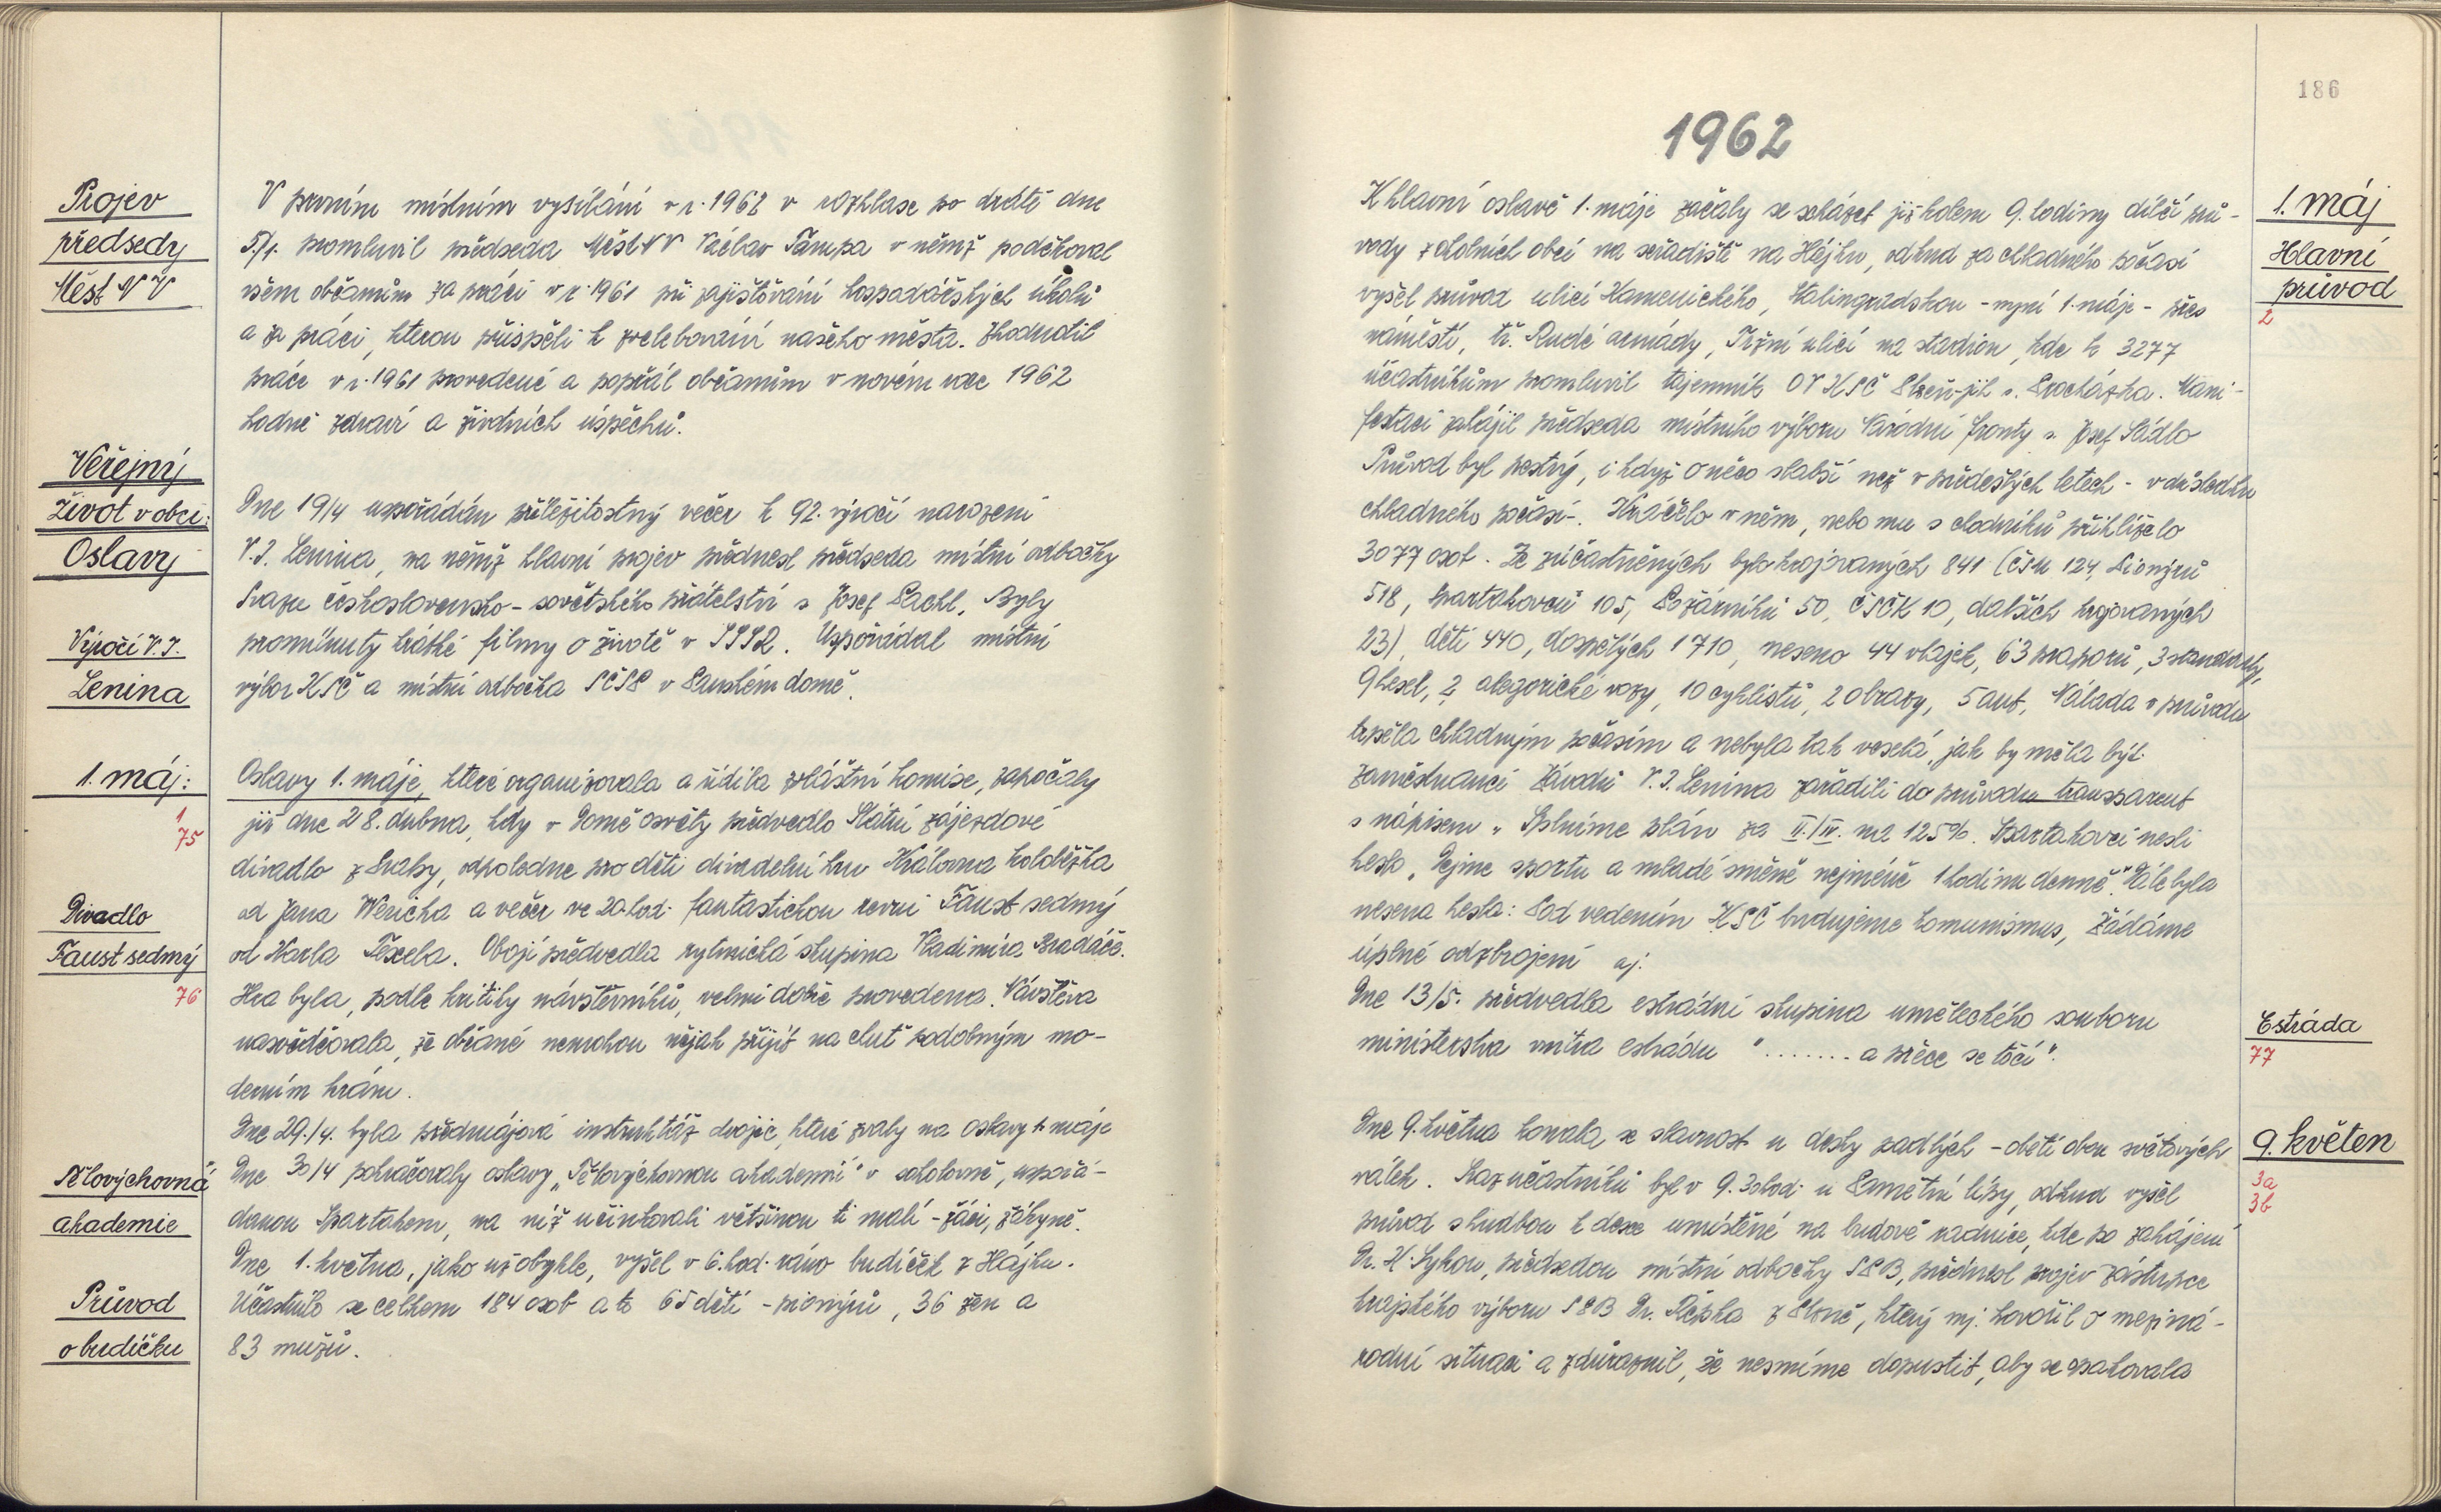 Projev
předsedy
Měst NV
V prvním místním vysílání v r. 1962 v rozhlase po drátě dne
5./1. promluvil předseda Měst NV Václav Tampa v němž poděkoval
všem občanům za práci v r. 1961 při zajišťování hospodářských úkolů
a za práci, kterou přispěli k zvelebování našeho města. Zhodnotil
práce v r. 1961 provedené a popřál občanům v novém roce 1962
hodně zdraví a životních úspěchů.
Veřejný
život v obci:
Oslavy
Výročí V. I.
Lenina
Dne 19/4 uspořádán příležitostný večer k 92. výročí narození
V. I. Lenina, na němž hlavní projev přednesl předseda místní odbočky
Svazu československo-sovětského přátelství s. Josef Pachl. Byly
promítnuty krátké filmy o životě v SSSR. Uspořádal místní
výbor KSČ a místní odbočka SČSP v Panském domě.
1. máj:
1
75
Oslavy 1. máje, které organizovala a řídila zvláštní komise, započaly
již dne 28. dubna, kdy v Domě osvěty předvedlo Státní zájezdové
divadlo z Prahy, odpoledne pro děti divadelní hru Královna koloběžka
od Jana Wericha a večer ve 20. hod. fantastickou revui Faust sedmý
od Karla Texela. Obojí předvedla rytmická skupina Vladimíra Bradáče.
Hra byla, podle kritiky návštěvníků, velmi dobře provedena. Návštěva
nasvědčovala, že občané nemohou nějak přijít na chuť podobným mo-
derním hrám.
Divadlo
Faust sedmý
76
Dne 29./4. byla předmájová instruktáž dvojic, které zvaly na oslavy 1. máje
Dne 30/4 pokračovaly oslavy „Tělovýchovnou akademií" v sokolovně, uspořá-
danou Spartakem, na níž účinkovali většinou ti malí - žáci, žákyně.
Dne 1. května, jako už obykle, vyšel v 6. hod. ráno budíček z Hájku.
Účastnilo se celkem 184 osob a to 65 dětí - pionýrů, 36 žen a
83 mužů.
Tělovýchovná
akademie
Průvod
o budíčku
186
1962
K hlavní oslavě 1. máje začaly se scházet již kolem 9. hodiny dílčí prů-
vody z okolních obcí na seřadiště na Hájku, odkud za chladného počasí
vyšel průvod ulicí Kamenického, Stalingradskou - nyní 1. máje - přes
náměstí, tř. Rudé armády, Tržní ulicí na stadion, kde k 3277
účastníkům promluvil tajemník OV KSČ Plzeň-jih s. Procházka. Mani-
festaci zahájil předseda místního výboru Národní fronty s. Josef Sádlo
Průvod byl pestrý, i když o něco slabší než v předešlých letech - v důsledku
chladného počasí-. Kráčelo v něm, nebo mu s chodníků přihlíželo
3077 osob. Ze zúčastněných bylo krojovaných 841 (ČSM 124, Pionýrů
518, Spartakovců 105, Požárníků 50, ČSČK 10, dalších krojovaných
23), dětí 440, dospělých 1710, neseno 44 vlajek, 63 praporů, 3 standarty,
9 hesel, 2 alegorické vozy, 10 cyklistů, 2 obrazy, 5 aut. Nálada v průvodu
trpěla chladným počasím a nebyla tak veselá, jak by měla být.
Zaměstnanci Závodů V. I. Lenina zařadili do průvodu transparent
s nápisem „Splníme plán za II./IV. na 125%. Spartakovci nesli
heslo „Dejme sportu a mladé směně nejméně 1 hodinu denně". Dále byla
nesena hesla: Pod vedením KSČ budujeme komunismus, Žádáme
úplné odzbrojení aj.
Dne 13/5. předvedla estrádní skupina uměleckého souboru
ministerstva vnitra estrádu "........ a přece se točí".
Dne 9. května konala se slavnost u desky padlých - obětí obou světových
válek. Sraz účastníků byl v 9.30 hod. u Pamětní lípy, odkud vyšel
průvod s hudbou k desce umístěné na budově radnice, kde po zahájení
Dr. K. Sýkou, předsedou místní odbočky SPB, přednesl projev zástupce
krajského výboru SPB Dr. Řepka z Plzně, který mj. hovořil o meziná-
rodní situaci a zdůraznil, že nesmíme dopustit, aby se opakovala
1. máj
Hlavní
průvod
2
Estráda
77
9. květen
3a
3b